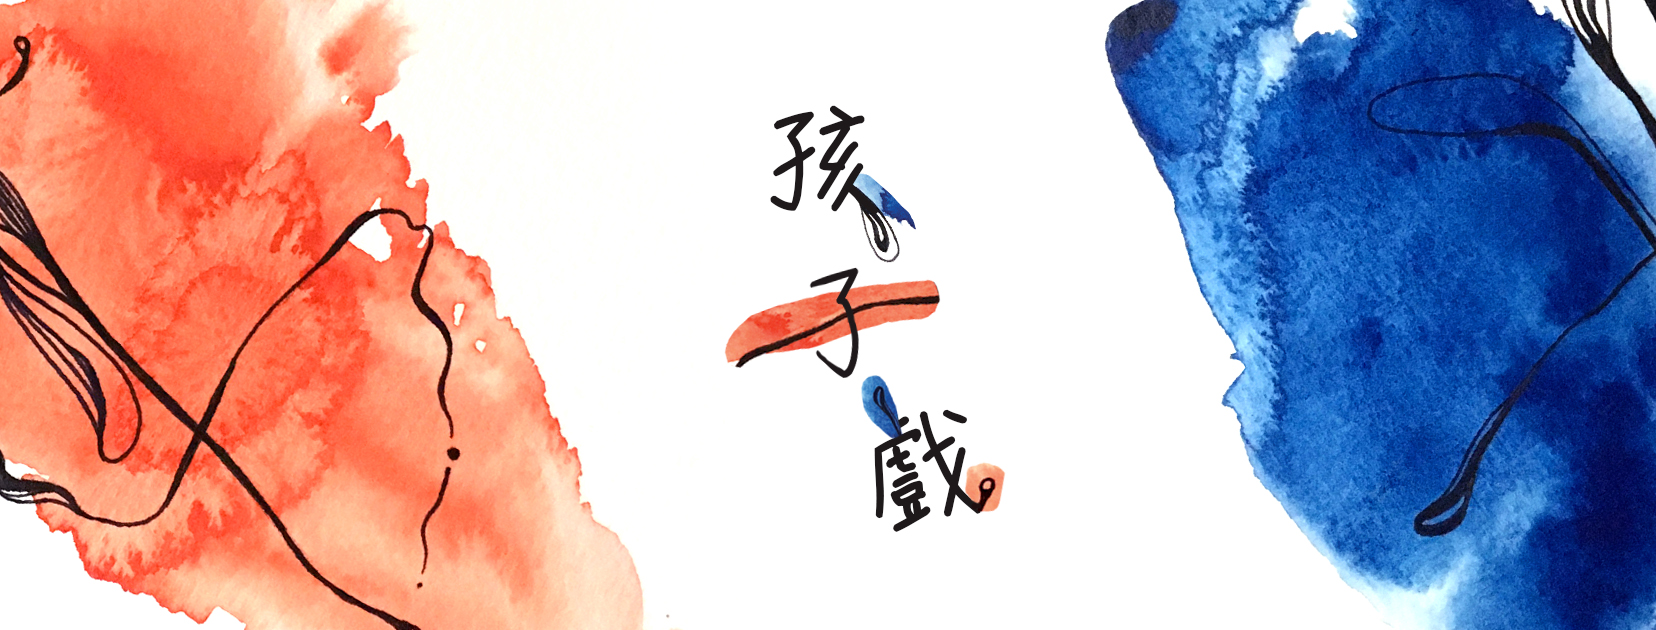 孩子戲